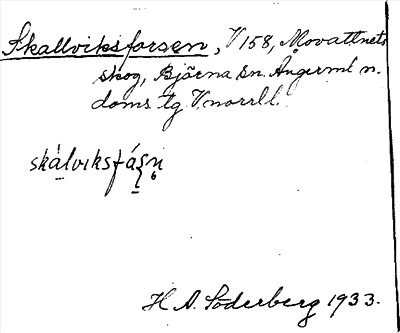 Skallviksforsen, V 158, Movattnets
skog, Björna sn. Ångerml n.
doms tg V.norrl l.
skálviksfá
H A. Söderberg 1933.